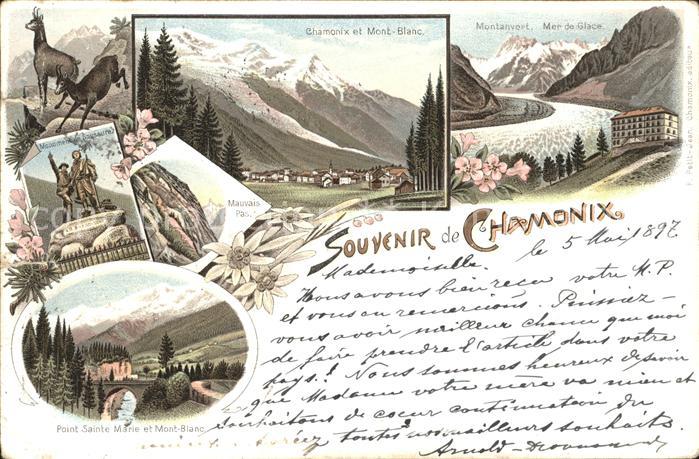 Chamonix et Mont-Blanc.
Montanvert, Mer de Glace.
Monument Saussure
Mauvais
Pas.
SOUVENIR de CHAMONIX.
le 5 Mai 1897
Mademoiselle.
Nous avons bien reçu votre M.P.
et vous en remercions. Puissiez-
vous avoir meilleur chance que moi
de faire prendre l'article dans votre
pays! Nous sommes heureux de savoir
que Madame votre mère va mieux et
souhaitons de coeur continuation du
toutes nos meilleurs souhaits.
Arnold
Point Sainte Marie et Mont-Blanc.